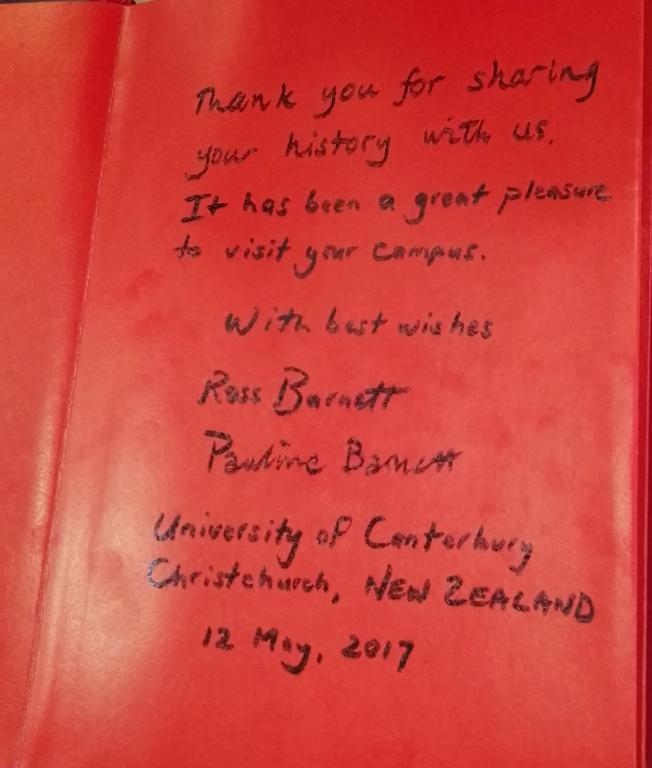 Thank you for sharing
your history with us.
It has been a great pleasure
to visit your campus.
With best wishes
Ross Barnett
Pauline Barnett
University of Canterbury
Christchurch, NEW ZEALAND
12 May, 2017